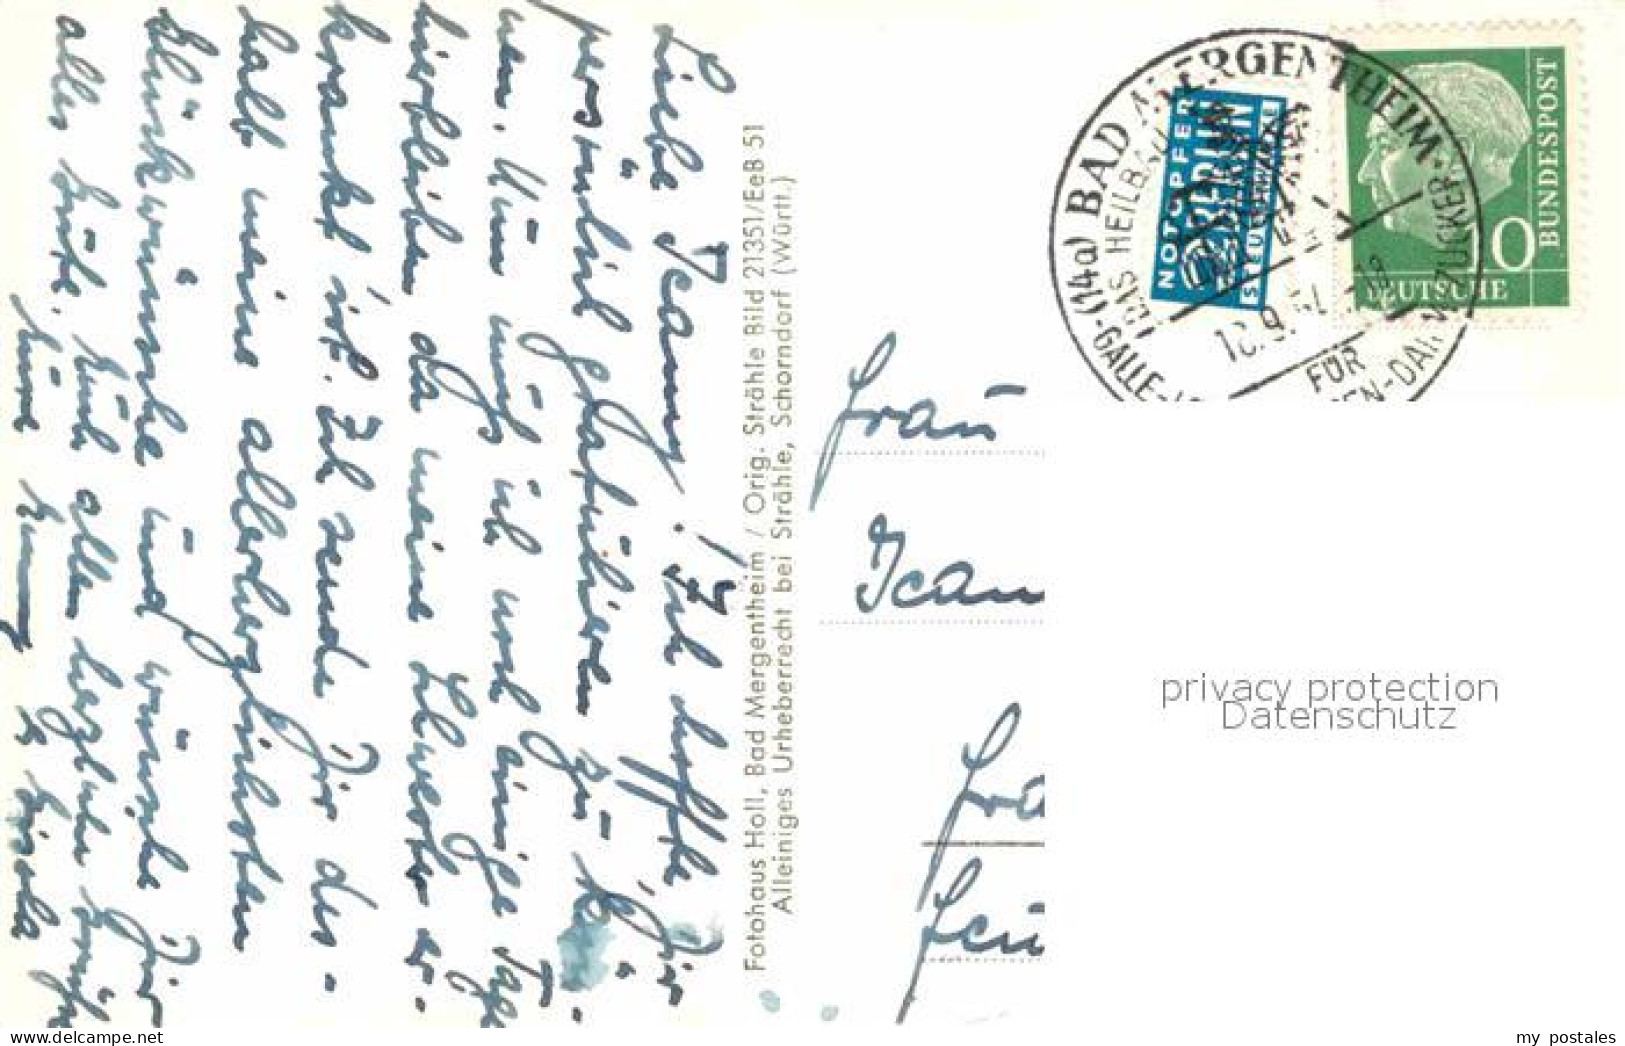 Liebe Jeanny! Ich hoffte Dir
persönlich gratulieren zu kö-
nen. Nun muß ich noch einige Tage
hierbleiben, da meine Schwester er-
krankt ist. Ich sende Dir des-
halb meine allerherzlichsten
Glückwünsche und wünsche Dir
alles Gute. Euch allen herzliche Grüße
Eure
Gisela
Fotohaus Holl, Bad Mergentheim / Orig. Strähle Bild 21351/EeB 51
Alleiniges Urheberrecht bei Strähle, Schorndorf (Württ.)
Frau
Jean
(14a) BAD MERGENTHEIM
DAS HEILBAD
FÜR
GALLE-
ZUCKER
NOTOPFER
BERLIN
STEUERMARKE
DEUTSCHE
BUNDESPOST
0
privacy protection
Datenschutz
my postales